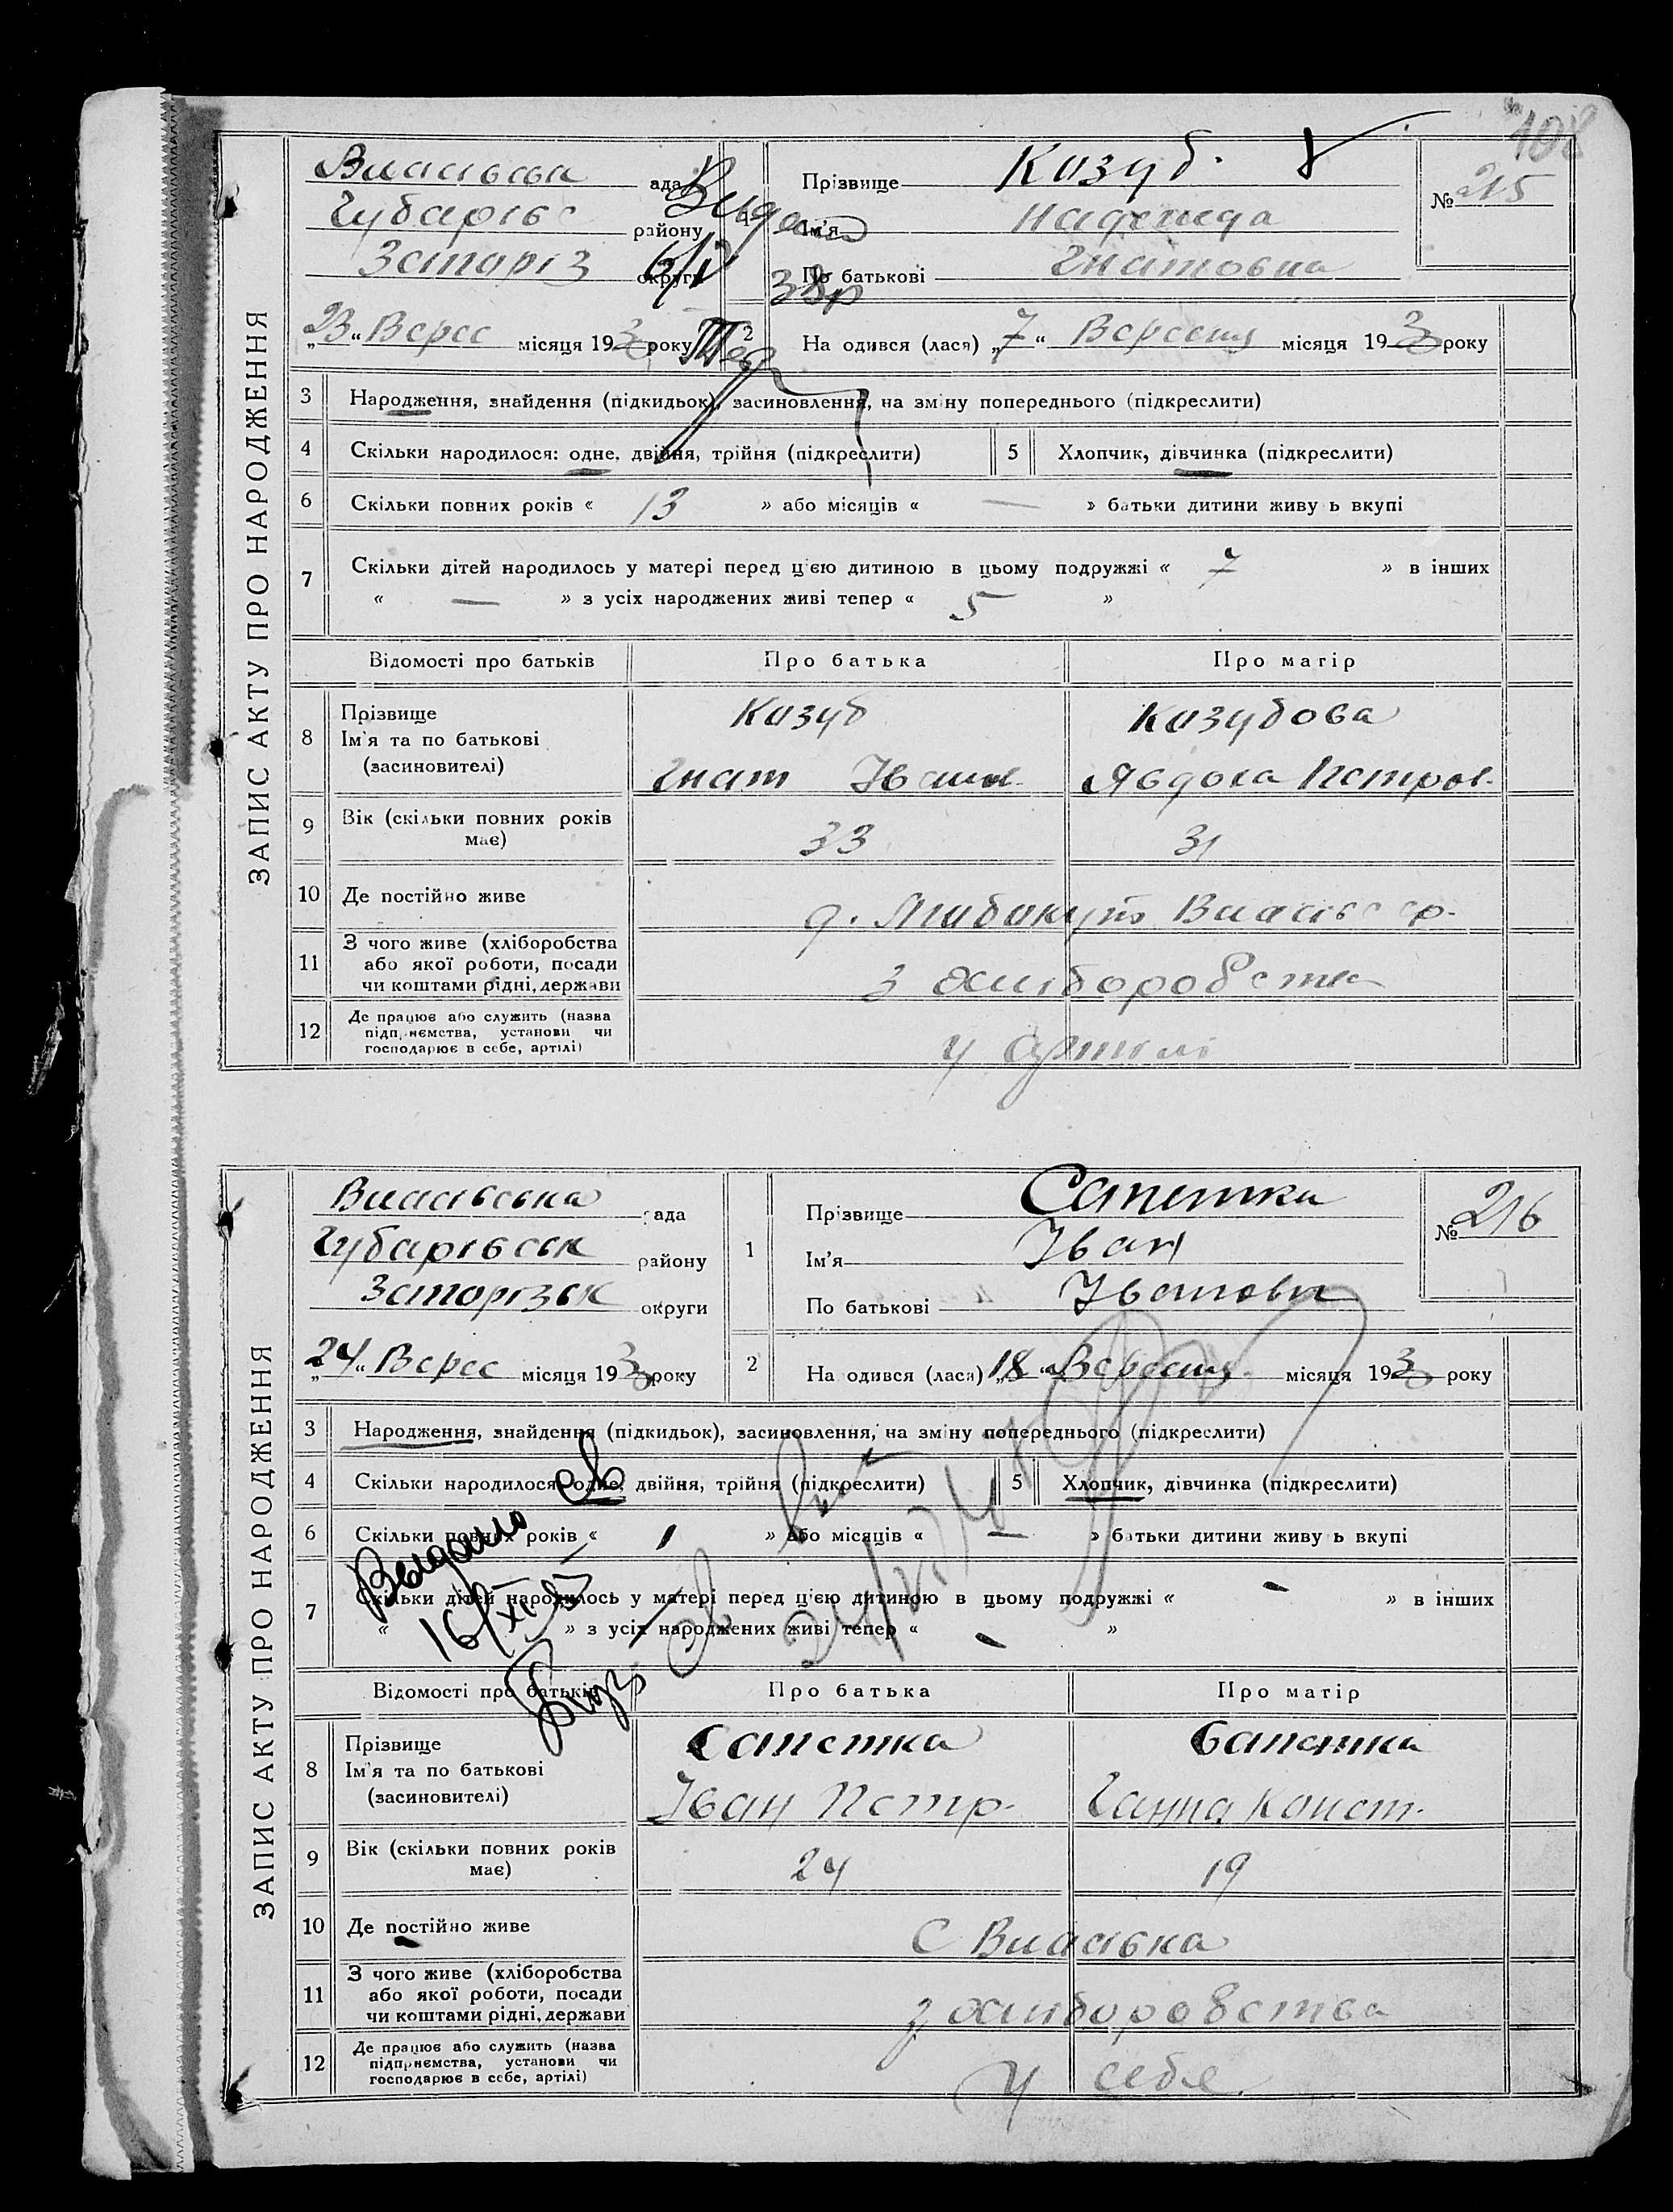 108
ЗАПИС АКТУ ПРО НАРОДЖЕННЯ
Власівська рада
Губарівс району
Запоріз округи
Видано
38р
1 Прізвище Козуб
Ім'я Надежда
По батькові Гнатовна
№ 215
„23“ Верес місяця 1930 року
2 На одився (лася) „7“ Вересня місяця 1930 року
3 Народження, знайдення (підкидьок), засиновлення, на зміну попереднього (підкреслити)
4 Скільки народилося: одне, двійня, трійня (підкреслити) 5 Хлопчик, дівчинка (підкреслити)
6 Скільки повних років « 13 » або місяців « — » батьки дитини живу ь вкупі
7 Скільки дітей народилось у матері перед ц'єю дитиною в цьому подружжі « 7 » в інших
« — » з усіх народжених живі тепер « 5 »
Відомості про батьків Про батька Про матір
8 Прізвище Козуб Козубова
Ім'я та по батькові
(засиновителі) Гнат Іванов. Явдоха Петров.
9 Вік (скільки повних років має) 33 31
10 Де постійно живе
11 З чого живе (хліборобства
або якої роботи, посади
чи коштами рідні, держави з хліборобства
12 Де працює або служить (назва
підприємства, установи чи
господарює в себе, артілі) у артілі
ЗАПИС АКТУ ПРО НАРОДЖЕННЯ
Власівська рада
Губарівськ району
Запорізьк округи
1 Прізвище Сапетка
Ім'я Іван
По батькові Іванови
№ 216
„24“ Верес місяця 1930 року
2 На одився (лася) „18“ Вересня місяця 1930 року
3 Народження, знайдення (підкидьок), засиновлення, на зміну попереднього (підкреслити)
4 Скільки народилося: одне, двійня, трійня (підкреслити) 5 Хлопчик, дівчинка (підкреслити)
6 Скільки повних років « 1 » або місяців « — » батьки дитини живу ь вкупі
7 Скільки дітей народилось у матері перед ц'єю дитиною в цьому подружжі « - » в інших
« » з усіх народжених живі тепер « - »
Видано
Відомості про батьків Про батька Про матір
8 Прізвище Сапетка Сапетка
Ім'я та по батькові
(засиновителі) Іван Петр. Ганна Конст.
9 Вік (скільки повних років має) 24 19
10 Де постійно живе С Власівка
11 З чого живе (хліборобства
або якої роботи, посади
чи коштами рідні, держави з хліборобства
12 Де працює або служить (назва
підприємства, установи чи
господарює в себе, артілі) у себе